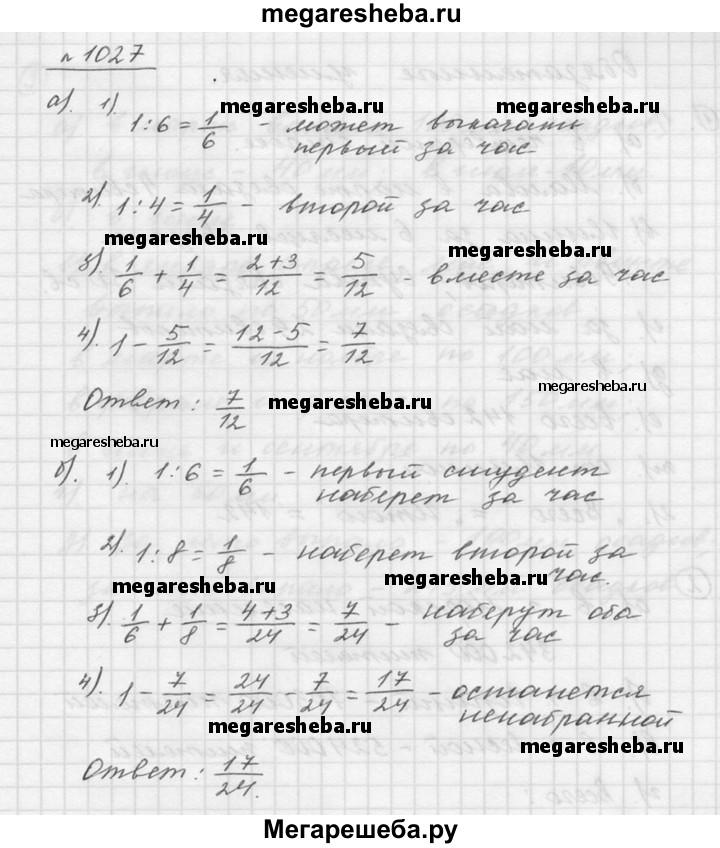 megaresheba.ru
№ 1027
а). 1) 1:6 = 1/6 - может выкачать
первый за час
megaresheba.ru megaresheba.ru
2). 1:4 = 1/4 - второй за час
megaresheba.ru megaresheba.ru
3). 1/6 + 1/4 = (2+3)/12 = 5/12 - вместе за час
4). 1 - 5/12 = (12-5)/12 = 7/12
megaresheba.ru
Ответ: 7/12 megaresheba.ru
megaresheba.ru
б). 1). 1:6 = 1/6 - первый студент
наберет за час
2). 1:8 = 1/8 - наберет второй за
час.
megaresheba.ru megaresheba.ru
3). 1/6 + 1/8 = (4+3)/24 = 7/24 - наберут оба
за час
4). 1 - 7/24 = 24/24 - 7/24 = 17/24 - останется
ненабранной
megaresheba.ru megaresheba.ru
Ответ: 17/24.
Мегарешеба.ру